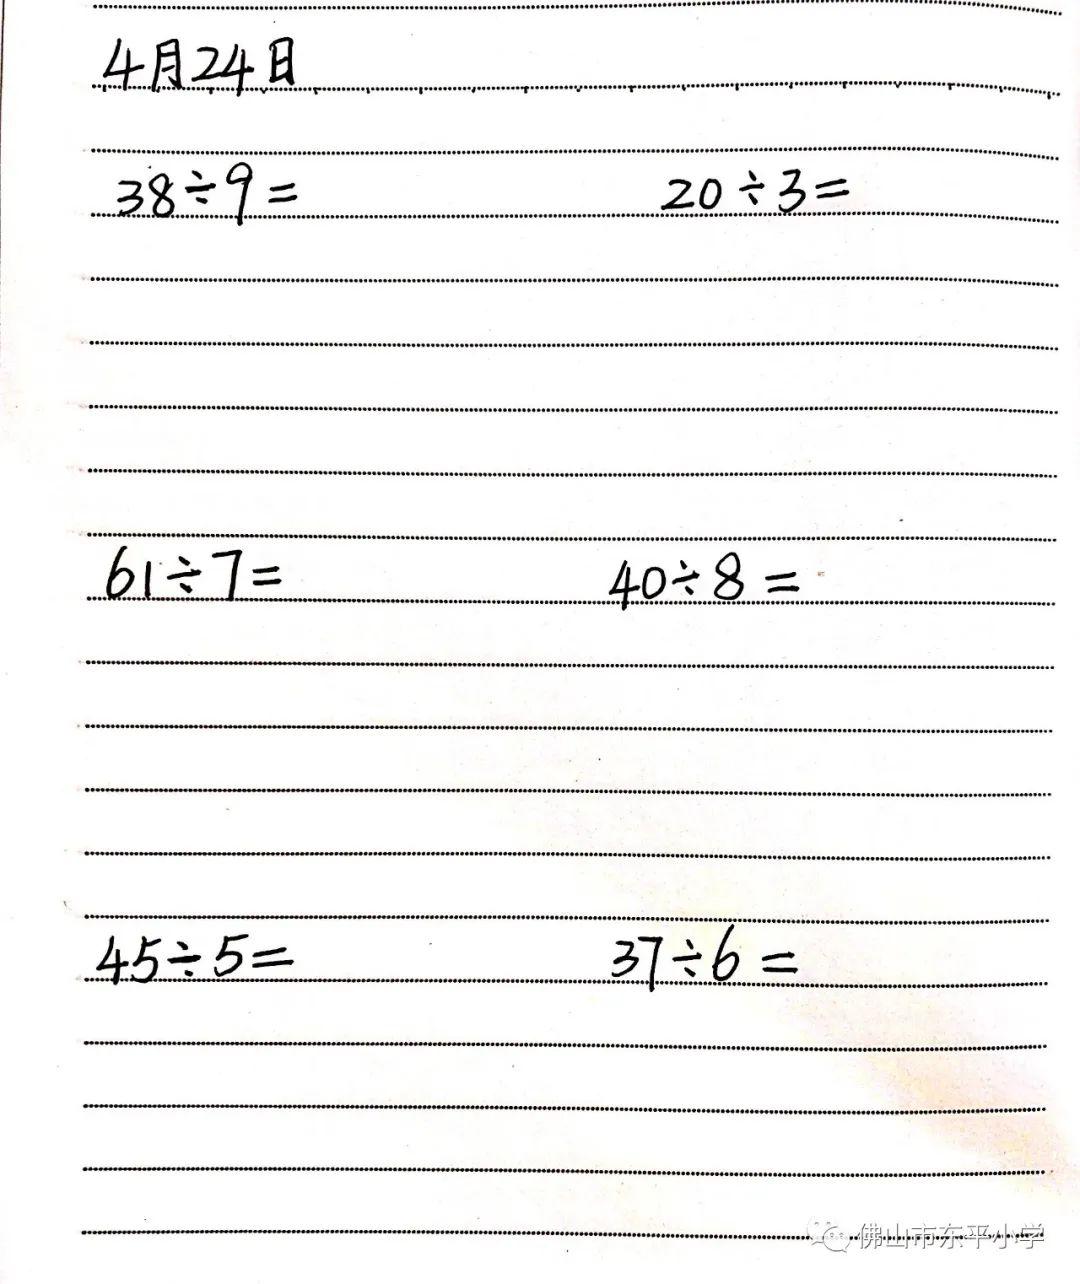 4月24日
38÷9= 20÷3=
61÷7= 40÷8=
45÷5= 37÷6=
佛山市东平小学